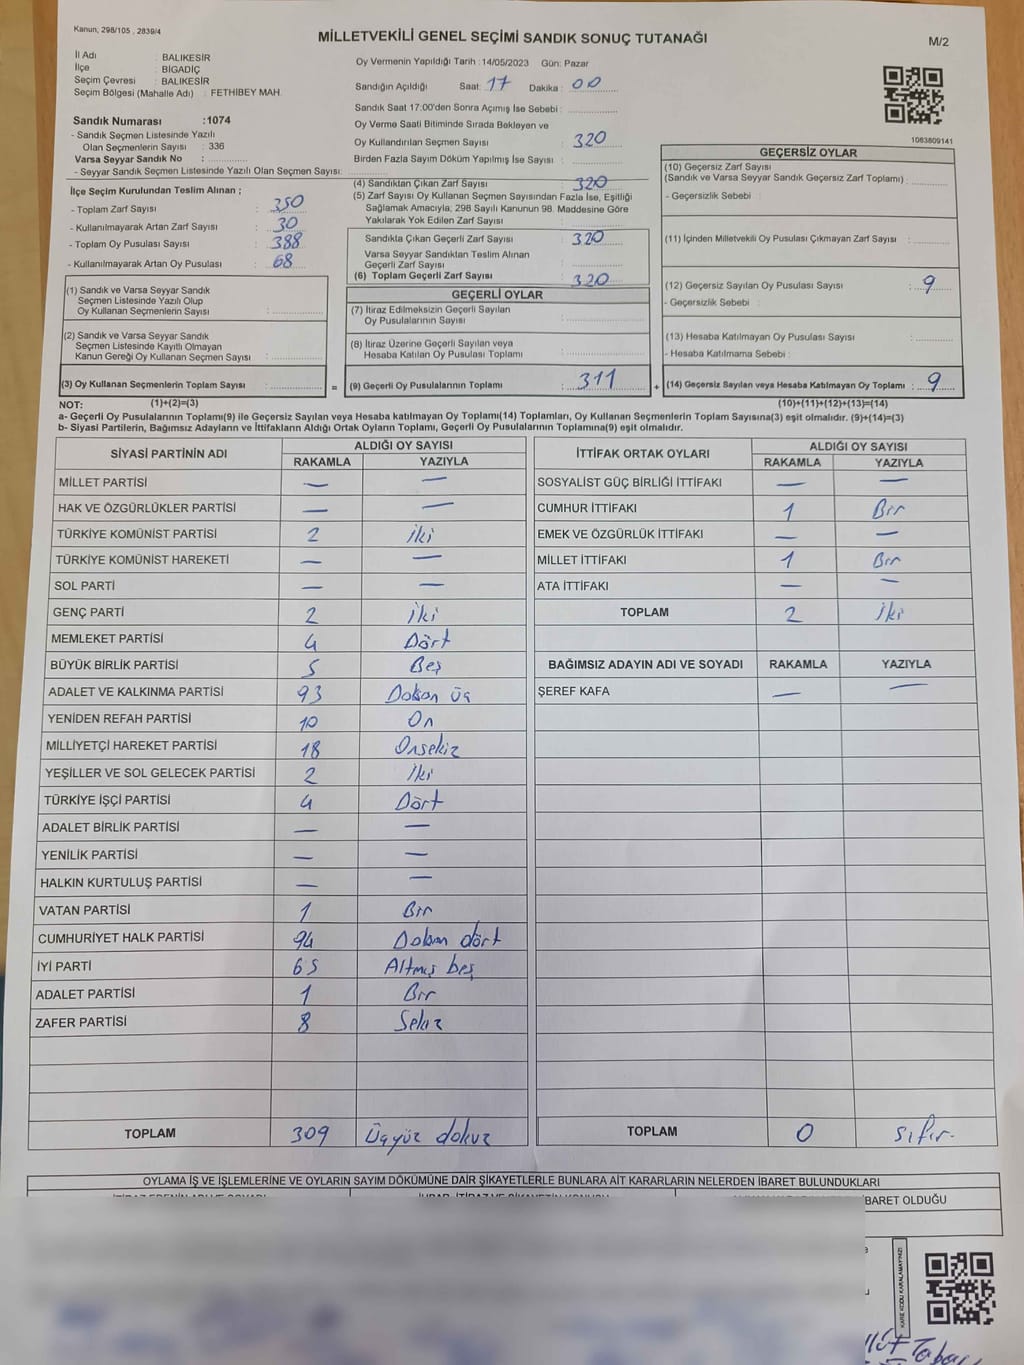 Kanun, 298/105 , 2839/4
MİLLETVEKİLİ GENEL SEÇİMİ SANDIK SONUÇ TUTANAĞI
M/2
İl Adı : BALIKESİR
İlçe : BİGADİÇ
Seçim Çevresi : BALIKESİR
Seçim Bölgesi (Mahalle Adı) : FETHİBEY MAH.
Sandık Numarası :1074
- Sandık Seçmen Listesinde Yazılı
Olan Seçmenlerin Sayısı : 336
Varsa Seyyar Sandık No :
- Seyyar Sandık Seçmen Listesinde Yazılı Olan Seçmen Sayısı:
İlçe Seçim Kurulundan Teslim Alınan ;
- Toplam Zarf Sayısı : 350
- Kullanılmayarak Artan Zarf Sayısı : 30
- Toplam Oy Pusulası Sayısı : 388
- Kullanılmayarak Artan Oy Pusulası : 68
(1) Sandık ve Varsa Seyyar Sandık
Seçmen Listesinde Yazılı Olup
Oy Kullanan Seçmenlerin Sayısı :
(2) Sandık ve Varsa Seyyar Sandık
Seçmen Listesinde Kayıtlı Olmayan
Kanun Gereği Oy Kullanan Seçmen Sayısı :
(3) Oy Kullanan Seçmenlerin Toplam Sayısı :
Oy Vermenin Yapıldığı Tarih : 14/05/2023 Gün: Pazar
Sandığın Açıldığı Saat: 17 Dakika : 00
Sandık Saat 17:00'den Sonra Açımış İse Sebebi :
Oy Verme Saati Bitiminde Sırada Bekleyen ve
Oy Kullandırılan Seçmen Sayısı : 320
Birden Fazla Sayım Döküm Yapılmış İse Sayısı :
(4) Sandıktan Çıkan Zarf Sayısı : 320
(5) Zarf Sayısı Oy Kullanan Seçmen Sayısından Fazla İse, Eşitliği
Sağlamak Amacıyla, 298 Sayılı Kanunun 98. Maddesine Göre
Yakılarak Yok Edilen Zarf Sayısı :
Sandıkta Çıkan Geçerli Zarf Sayısı : 320
Varsa Seyyar Sandıktan Teslim Alınan
Geçerli Zarf Sayısı :
(6) Toplam Geçerli Zarf Sayısı : 320
GEÇERLİ OYLAR
(7) İtiraz Edilmeksizin Geçerli Sayılan
Oy Pusulalarının Sayısı :
(8) İtiraz Üzerine Geçerli Sayılan veya
Hesaba Katılan Oy Pusulası Toplamı :
= (9) Geçerli Oy Pusulalarının Toplamı : 311
1083809141
GEÇERSİZ OYLAR
(10) Geçersiz Zarf Sayısı
(Sandık ve Varsa Seyyar Sandık Geçersiz Zarf Toplamı) :
- Geçersizlik Sebebi :
(11) İçinden Milletvekili Oy Pusulası Çıkmayan Zarf Sayısı :
(12) Geçersiz Sayılan Oy Pusulası Sayısı : 9
- Geçersizlik Sebebi :
(13) Hesaba Katılmayan Oy Pusulası Sayısı :
- Hesaba Katılmama Sebebi :
+ (14) Geçersiz Sayılan veya Hesaba Katılmayan Oy Toplamı : 9
NOT: (1)+(2)=(3) (10)+(11)+(12)+(13)=(14)
a- Geçerli Oy Pusulalarının Toplamı(9) ile Geçersiz Sayılan veya Hesaba katılmayan Oy Toplamı(14) Toplamları, Oy Kullanan Seçmenlerin Toplam Sayısına(3) eşit olmalıdır. (9)+(14)=(3)
b- Siyasi Partilerin, Bağımsız Adayların ve İttifakların Aldığı Ortak Oyların Toplamı, Geçerli Oy Pusulalarının Toplamına(9) eşit olmalıdır.
SİYASİ PARTİNİN ADI ALDIĞI OY SAYISI
RAKAMLA YAZIYLA
MİLLET PARTİSİ — —
HAK VE ÖZGÜRLÜKLER PARTİSİ — —
TÜRKİYE KOMÜNİST PARTİSİ 2 İki
TÜRKİYE KOMÜNİST HAREKETİ — —
SOL PARTİ — —
GENÇ PARTİ 2 İki
MEMLEKET PARTİSİ 4 Dört
BÜYÜK BİRLİK PARTİSİ 5 Beş
ADALET VE KALKINMA PARTİSİ 93 Doksan üç
YENİDEN REFAH PARTİSİ 10 On
MİLLİYETÇİ HAREKET PARTİSİ 18 Onsekiz
YEŞİLLER VE SOL GELECEK PARTİSİ 2 İki
TÜRKİYE İŞÇİ PARTİSİ 4 Dört
ADALET BİRLİK PARTİSİ — —
YENİLİK PARTİSİ — —
HALKIN KURTULUŞ PARTİSİ — —
VATAN PARTİSİ 1 Bir
CUMHURİYET HALK PARTİSİ 94 Doksan dört
İYİ PARTİ 65 Altmış beş
ADALET PARTİSİ 1 Bir
ZAFER PARTİSİ 8 Sekiz
TOPLAM 309 Üçyüz dokuz
İTTİFAK ORTAK OYLARI ALDIĞI OY SAYISI
RAKAMLA YAZIYLA
SOSYALİST GÜÇ BİRLİĞİ İTTİFAKI — —
CUMHUR İTTİFAKI 1 Bir
EMEK VE ÖZGÜRLÜK İTTİFAKI — —
MİLLET İTTİFAKI 1 Bir
ATA İTTİFAKI — —
TOPLAM 2 İki
BAĞIMSIZ ADAYIN ADI VE SOYADI RAKAMLA YAZIYLA
ŞEREF KAFA — —
TOPLAM 0 sıfır.
OYLAMA İŞ VE İŞLEMLERİNE VE OYLARIN SAYIM DÖKÜMÜNE DAİR ŞİKAYETLERLE BUNLARA AİT KARARLARIN NELERDEN İBARET BULUNDUKLARI
İBARET OLDUĞU
KARE KODU KARALAMAYINIZ!